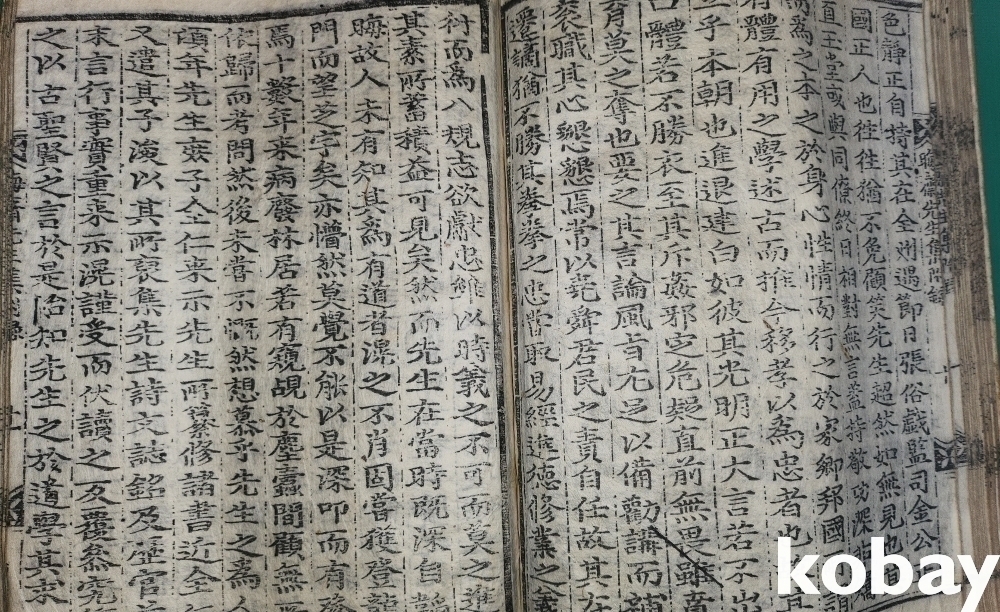 色靜正自持其在全州遇節日張俗戲監司金公
國正人也往往猶不免顧笑先生超然如無見也
直玉堂或與同僚終日相對無言蓋持敬功深
而爲之本之於身心性情而行之於家鄉邦國
有體有用之學述古而推今移孝以爲忠者也
立乎本朝也進退建白如彼其光明正大言若不出
口體若不勝衣至其斥姦邪定危疑直前無畏雖賁
育莫之奪也要之其言論風旨尤足以備勸講而補
袞職其心懇懇焉常以堯舜君民之責自任故其在
遷謫猶不勝其拳拳之忠嘗取易經進德修業之義
衍而爲八規志欲獻忠雖以時義之不可而莫之進
其素所蓄積益可見矣然而先生在當時旣深自
晦故人未有知其爲有道者滉之不肖固嘗獲登龍
門而望芝宇矣亦懵然莫覺不能以是深叩而有發
焉十數年來病廢林居若有窺覘於塵蠹間顧無所
依歸而考問然後未嘗不慨然想慕乎先生之爲人
頃年先生庶子全仁來示先生所纂修諸書近全仁
又遣其子浚以其所裒集先生詩文誌銘及歷官
末言行事實重來示滉謹受而伏讀之反覆參究
之以古聖賢之言於是始知先生之於道學其求
kobay